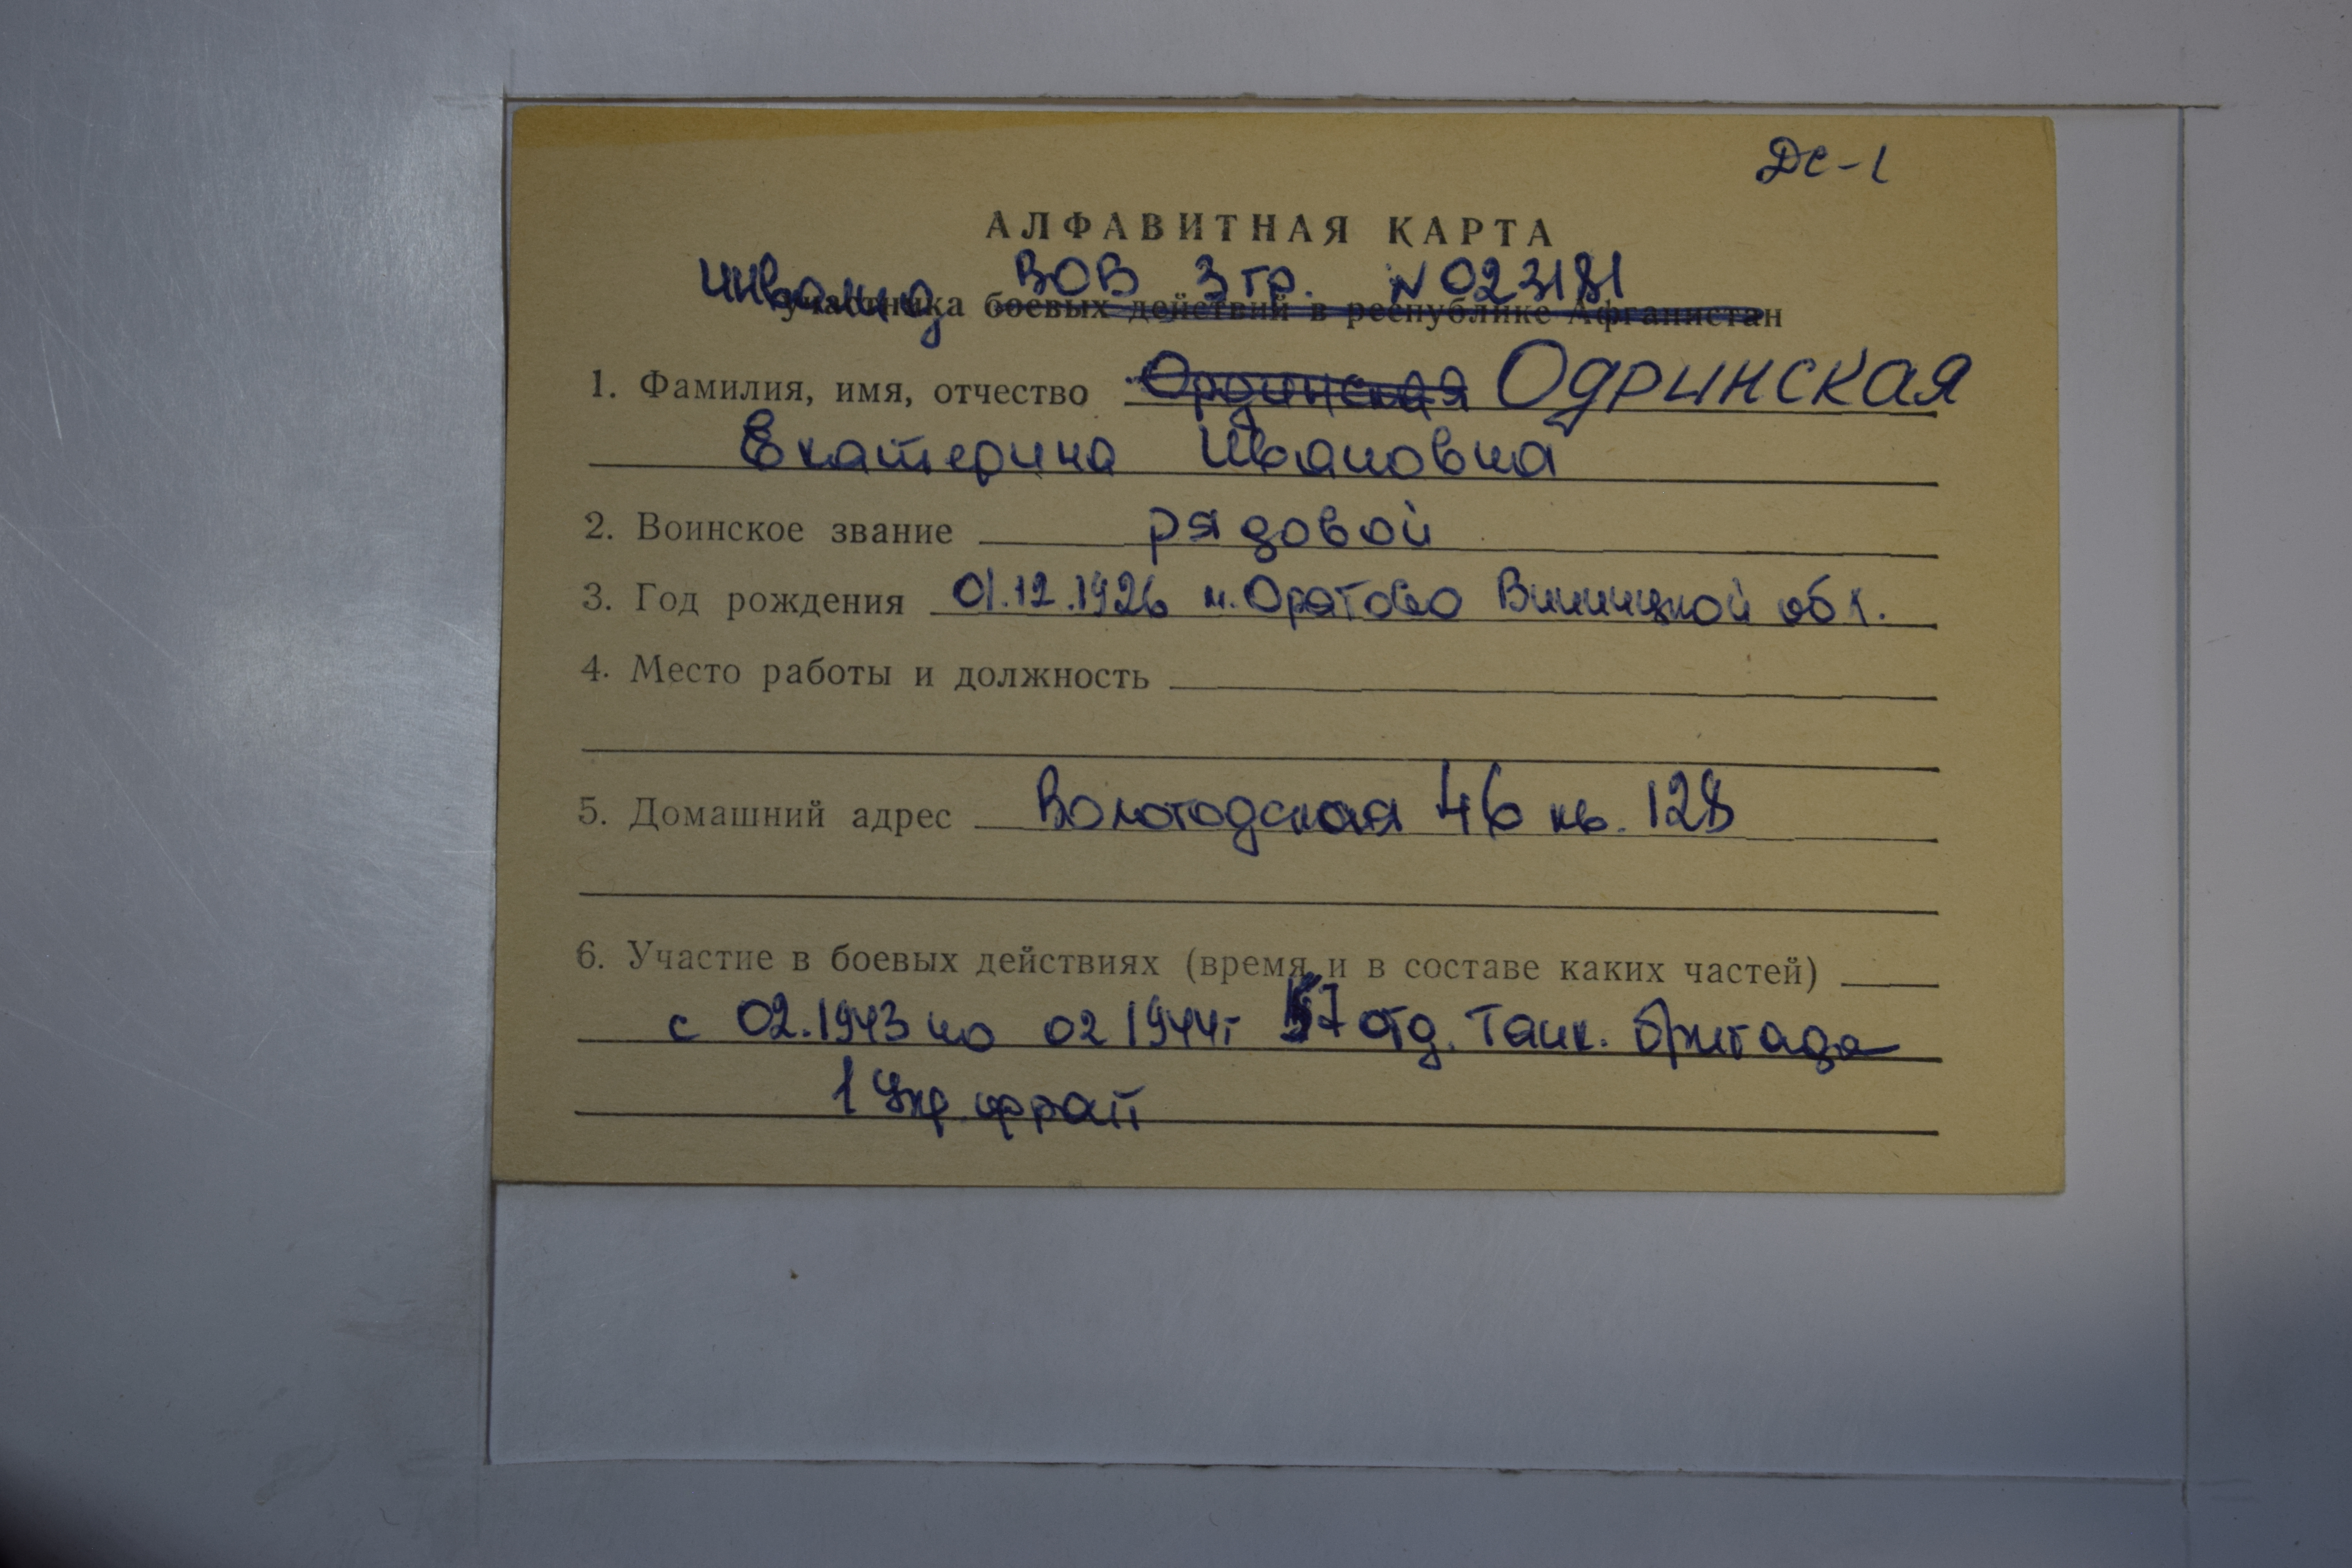 ДС-1
АЛФАВИТНАЯ КАРТА
инвалид ВОВ 3 гр. № 023181
участника боевых действий в республике Афганистан
1. Фамилия, имя, отчество Ординская Одринская
Екатерина Ивановна
2. Воинское звание рядовой
3. Год рождения 01.12.1926 м. Оратово Винницкой обл.
4. Место работы и должность
5. Домашний адрес Вологодская 46 кв. 128
6. Участие в боевых действиях (время и в составе каких частей)
с 02.1943 по 02 1944г 57 отд. танк. бригада
1 Укр. фронт